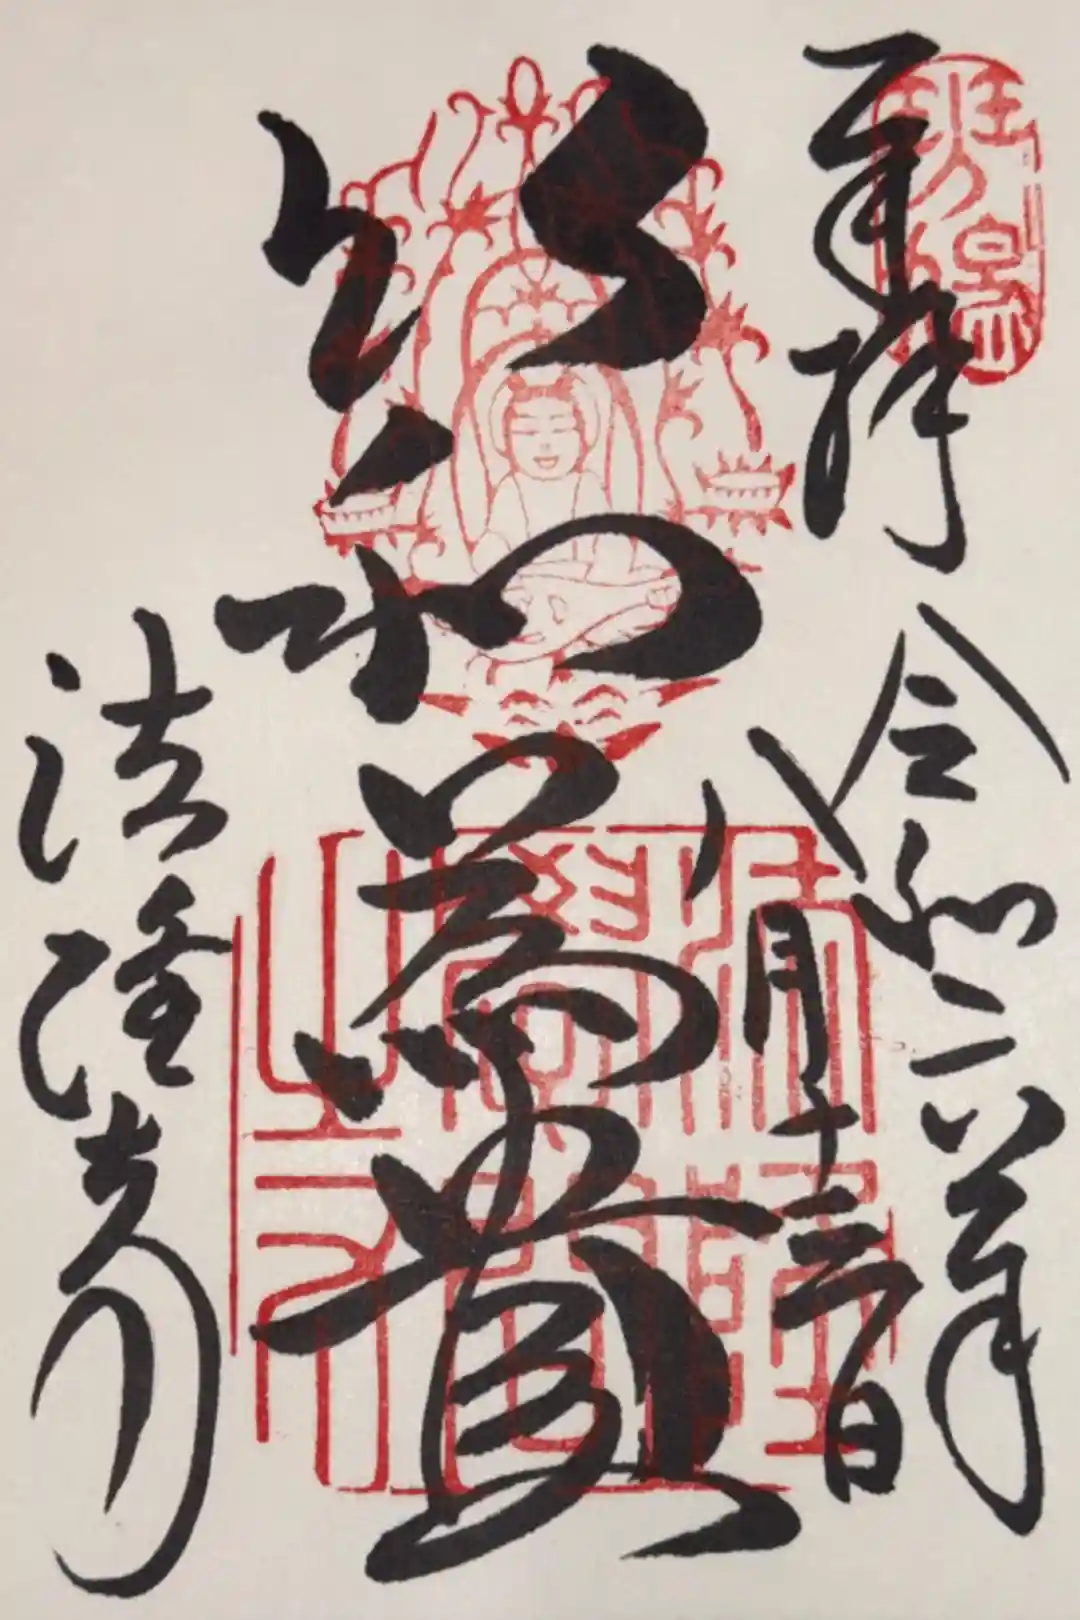 奉拝
令和二年
八月十三日
以和為貴
法隆寺
斑鳩